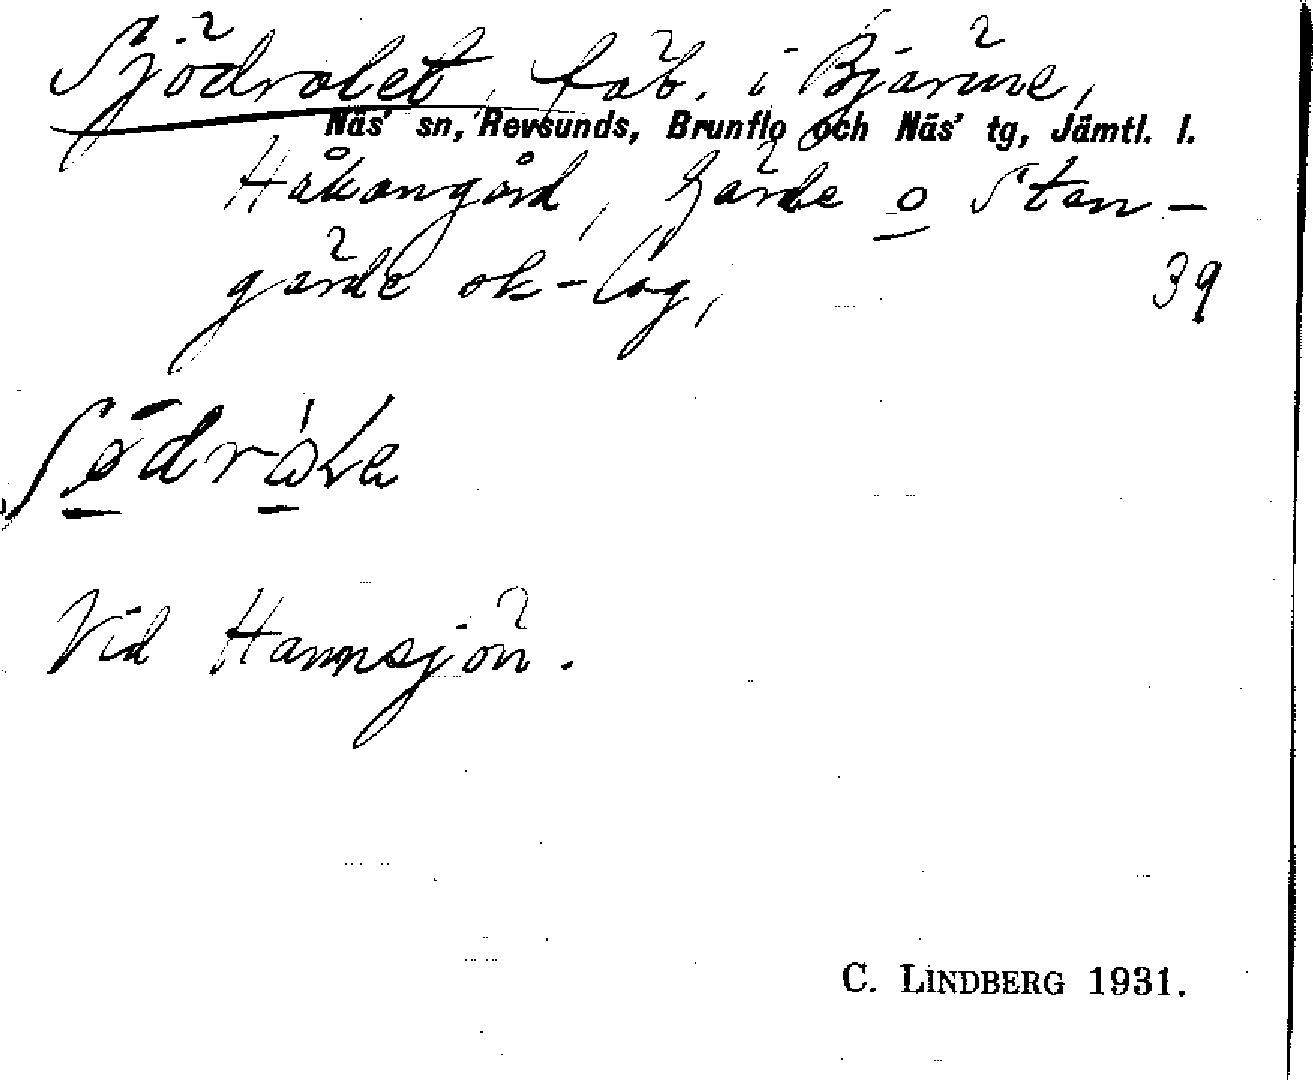 Sjödrolet, fäb. i Bjärme,
Näs' sn, Revsunds, Brunflo och Näs' tg, Jämtl. l.
Håkangård, Gärde o Sten-
gärde ok-låg, 39
Vid Hannsjön.
C. LINDBERG 1931.